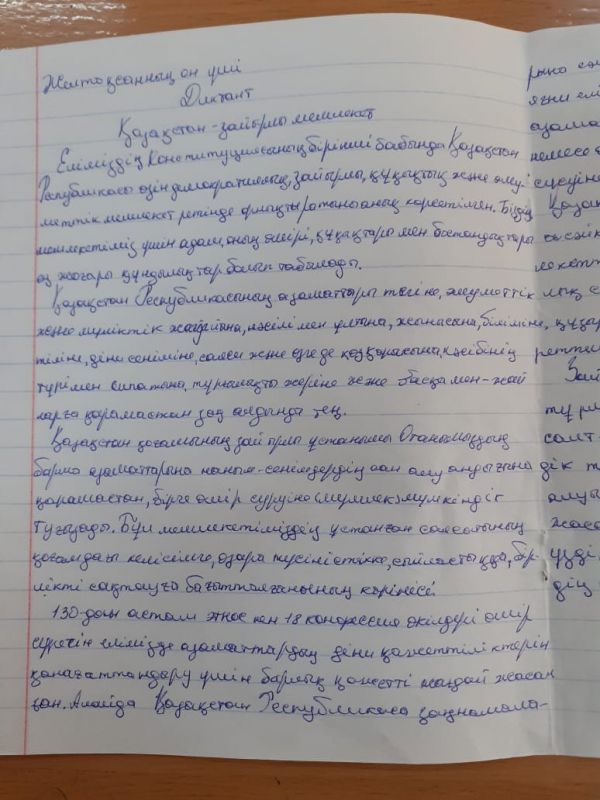 Желтоқсанның он үші
Диктант
Қазақстан - зайырлы мемлекет
Еліміздің Конституциясының бірінші бабында Қазақстан
Республикасы өзін демократиялық, зайырлы, құқықтық және әлеу-
меттік мемлекет ретінде орнықтыратынының көрсетілген. Біздің
мемлекетіміз үшін адам, оның өмірі, құқықтары мен бостандықтары
ең жоғары құндылықтар болып табылады.
Қазақстан Республикасының азаматтары тегіне, әлеуметтік
және мүліктік жағдайына, нәсілі мен ұлтына, жынысына, біліміне,
тіліне, дінге сеніміне, саяси және өзге де көзқарасына, кәсібінің
түрі мен сипатына, тұрғылықты жеріне және басқа мән-жай
ларға қарамастан заң алдында тең.
Қазақстан қоғамының зайырлы ұстанымы Отанымыздың
барлық азаматтарына наным-сенімдердің сан алуандығына
қарамастан, бірге өмір сүруіне мүмкіндік
туғызады. Бұл мемлекетіміздің ұстанған саясатының
қоғамдағы келісімге, өзара түсіністікке, сыйластыққа, бір-
лікті сақтауға бағытталғанының көрінісі.
130-дан астам этнос пен 18 конфессия өкілдері өмір
сүретін елімізде азаматтардың діни қажеттіліктерін
қанағаттандыру үшін барлық қажетті жағдай жасал
ған. Алайда Қазақстан Республикасы заңнамала-
рына
яғни елі
азама
немесе
Қазақ
сәйк
мекетт
лық
құқық
реттел
Зай
тұрл
салт-
дік
алуы
жаса
үзді
дің